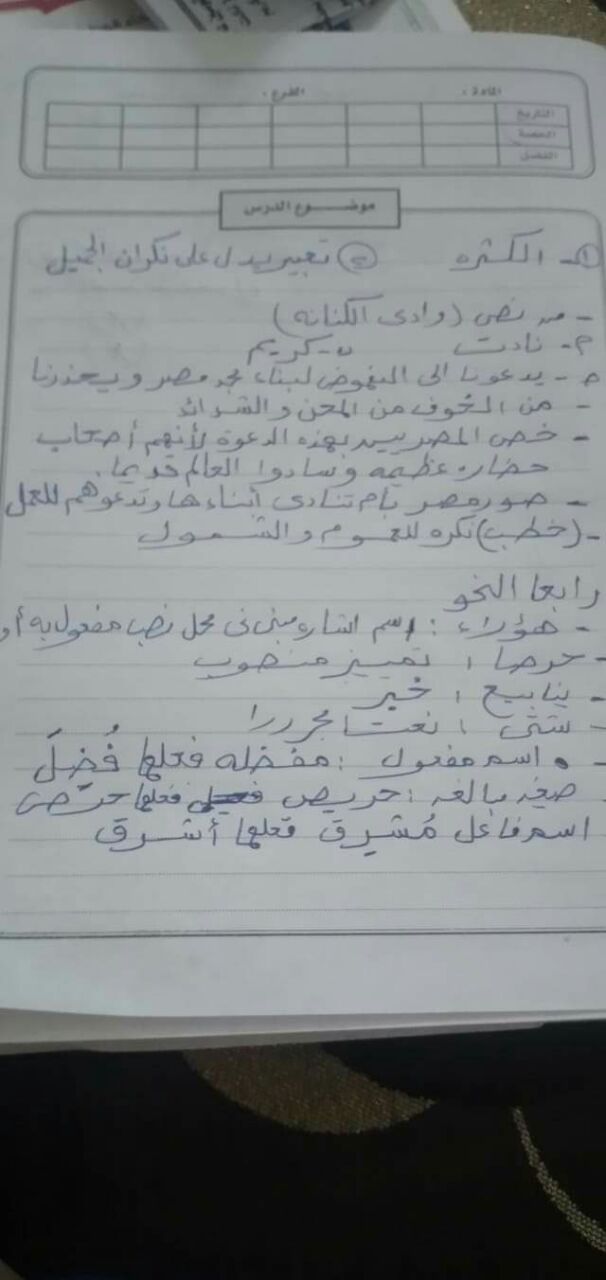 المادة : الفرع :
التاريخ
الحصة
الفصل
موضوع الدرس
١- الكثره ٢ تعبير يدل على نكران الجميل
- من نص (وادى الكنانه)
م- نادت ن- كريم
م- يدعونا الى النهوض لبناء مجد مصر ويحذرنا
- من الخوف من المحن والشدائد
- خص المصريين بهذه الدعوة لأنهم أصحاب
حضاره عظيمه وسادوا العالم قديما.
- صور مصر بأم تنادى أبناءها وتدعوهم للعمل
- (خطب) نكره للعموم والشمول
رابعا النحو
- هؤلاء : اسم اشاره مبنى فى محل نصب مفعول به أو
- حرصا : تمييز منصوب
- ينابيع : خبر
- شتى : نعت مجرورا
- اسم مفعول : مفضله فعلها فُضِلَ
صيغه مبالغه : حريص فعلها حرص
اسم فاعل مُشرِق فعلها أشرق